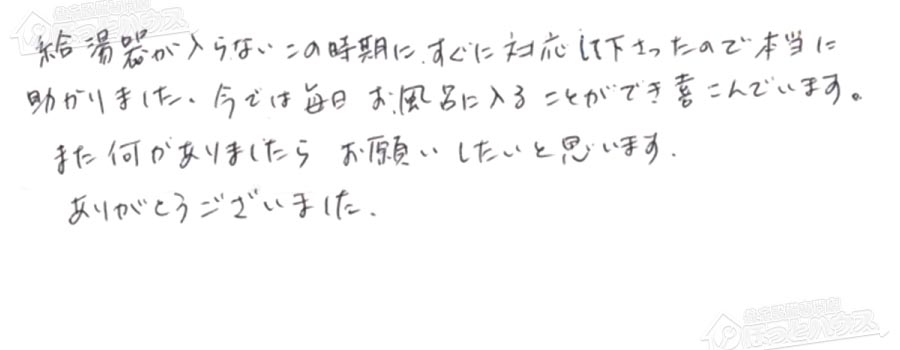 給湯器が入らないこの時期に、すぐに対応して下さったので本当に
助かりました。今では毎日お風呂に入ることができ喜こんでいます。
また何かありましたらお願いしたいと思います.
ありがとうございました.
ほっとハウス
ほっとハウス